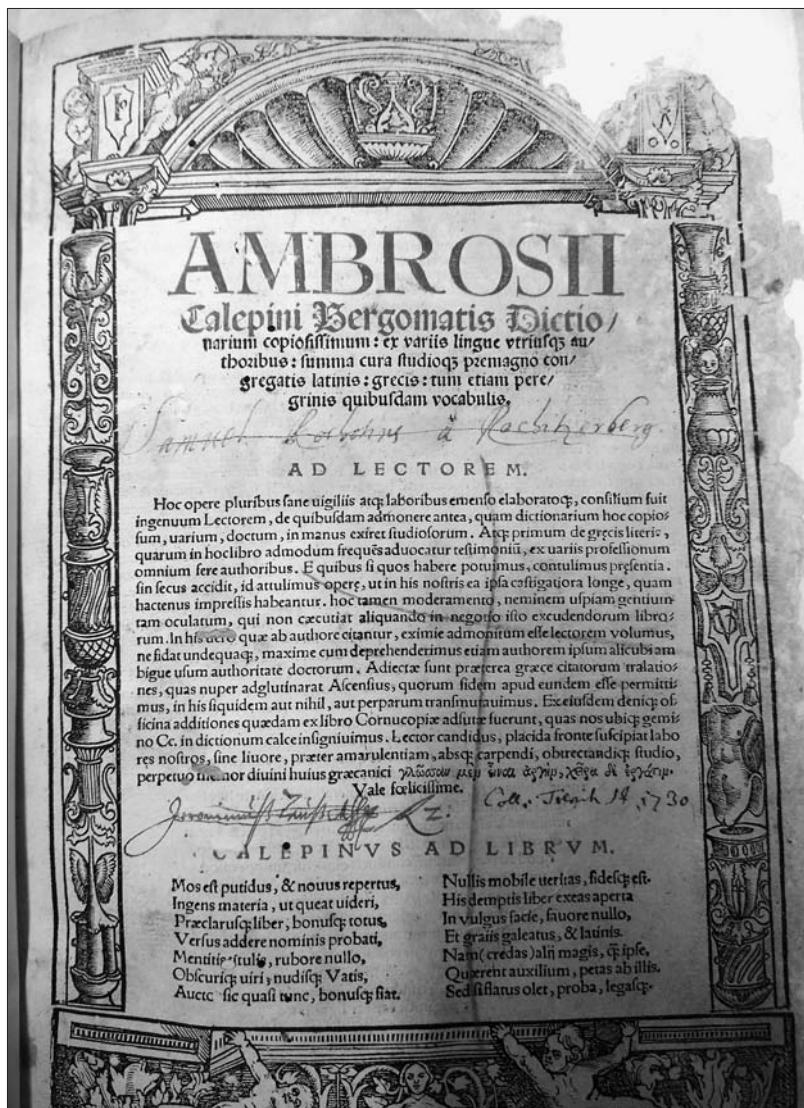 AMBROSII
Calepini Bergomatis Dictio/
narium copiosissimum: ex variis lingue vtriusqꝫ au/
thoribus: summa cura studioqꝫ premagno con/
gregatis latinis: grecis: tum etiam pere/
grinis quibusdam vocabulis.
Samuel à
AD LECTOREM.
Hoc opere pluribus sane uigiliis atqꝫ laboribus emenso elaboratoqꝫ, consilium fuit
ingenuum Lectorem, de quibusdam admonere antea, quam dictionarium hoc copio/
sum, uarium, doctum, in manus exiret studiosorum. Atqꝫ primum de gręcis literis,
quarum in hoclibro admodum frequẽs aduocatur testimoniũ, ex uariis professionum
omnium fere authoribus. E quibus si quos habere potuimus, contulimus pręsentia.
sin secus accidit, id attulimus operę, ut in his nostris ea ipsa castigatiora longe, quam
hactenus impressis habeantur. hoc tamen moderamento, neminem uspiam gentium
tam oculatum, qui non cæcutiat aliquando in negotio isto excudendorum libro/
rum. In his uero quæ ab authore citantur, eximie admonitum esse lectorem volumus,
ne fidat undequaqꝫ, maxime cum deprehenderimus etiam authorem ipsum alicubi am
bigue usum authoritate doctorum. Adiectæ sunt præterea græce citatorum tralatio/
nes, quas nuper adglutinarat Ascensius, quorum fidem apud eundem esse permitti/
mus, in his siquidem aut nihil, aut perparum transmutauimus. Ex eiusdem deniqꝫ of/
ficina additiones quædam ex libro Cornucopiæ adsutæ fuerunt, quas nos ubiqꝫ gemi/
no Cc. in dictionum calce insigniuimus. Lector candidus, placida fronte suscipiat labo
res nostros, sine liuore, præter amarulentiam, absqꝫ carpendi, obtrectandiqꝫ studio,
perpetuo memor diuini huius græcanici γλῶσσαν μὲν
Vale fœlicissime. Coll. 1730
CALEPINVS AD LIBRVM.
Mos est putidus, & nouus repertus,
Ingens materia, ut queat uideri,
Præclarusqꝫ liber, bonusqꝫ totus,
Versus addere nominis probati,
rubore nullo,
Obscuriqꝫ uiri, nudisqꝫ Vatis,
sic quasi tunc, bonusqꝫ fiat.
Nullis mobile ueritas, fidesqꝫ est.
His demptis liber exeas aperta
In vulgus facie, fauore nullo,
Et graiis galeatus, & latinis.
Nam (credas) alii magis, qꝫ ipse,
Quærent auxilium, petas ab illis.
Sed si flatus olet, proba, legasqꝫ.